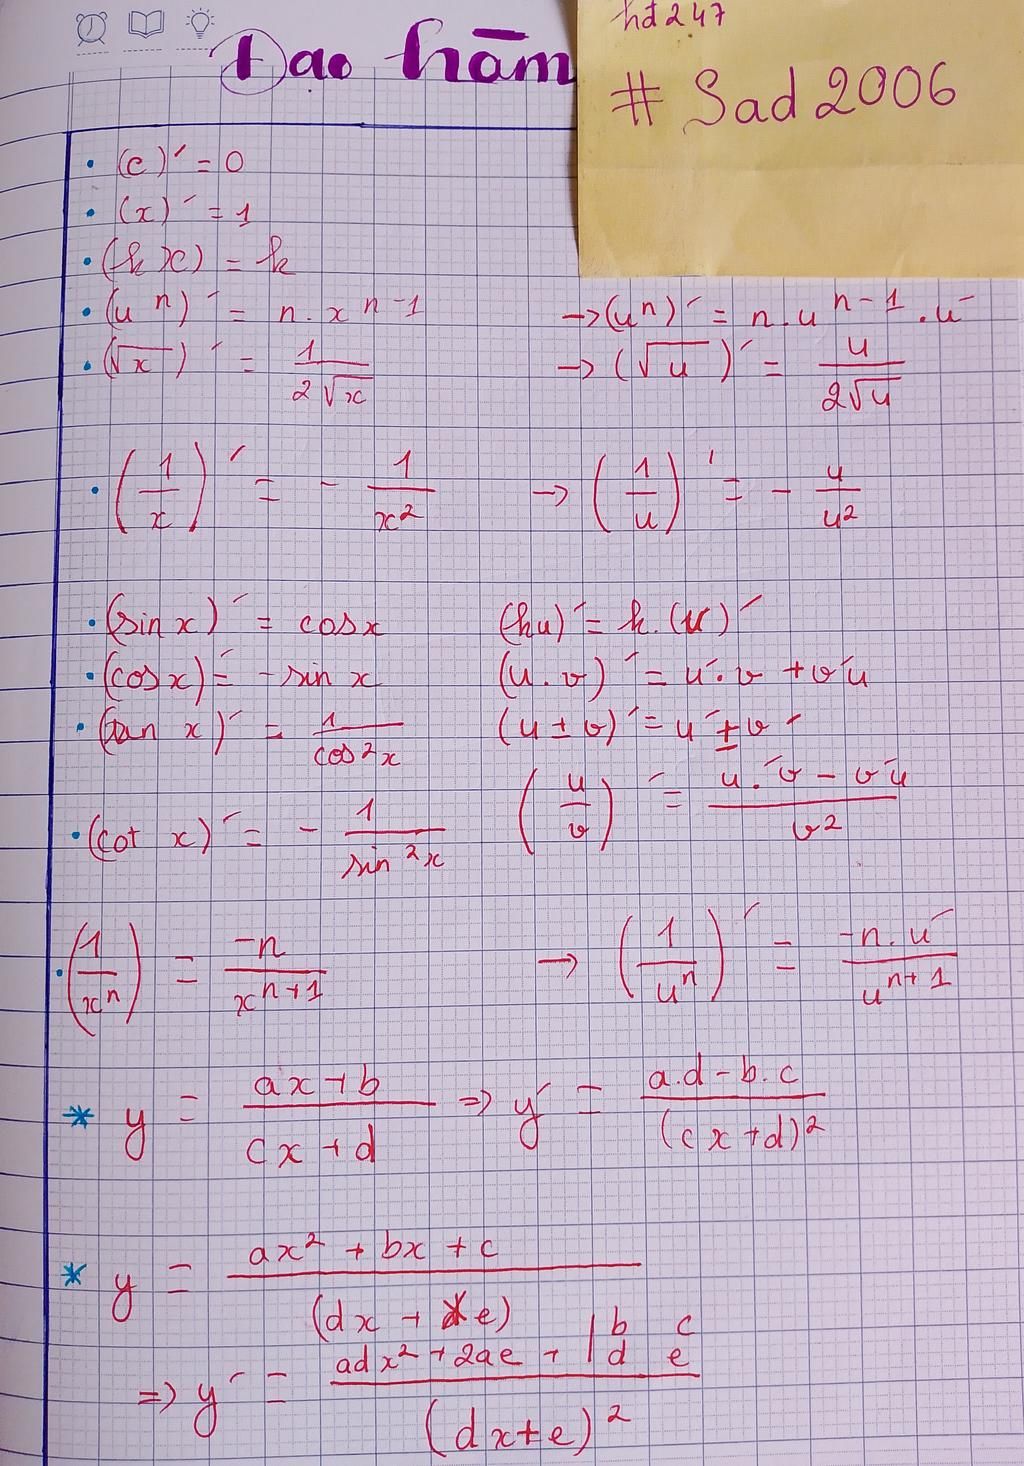 Đạo hàm
hđ247
# Sad 2006
• (c)′ = 0
• (x)′ = 1
• (kx) = k
• (u^n)′ = n.x^{n-1} → (u^n)′ = n.u^{n-1}.u′
• (√x)′ = 1/(2√x) → (√u)′ = u/(2√u)
• (1/x)′ = - 1/x² → (1/u)′ = - u/u²
• (sin x)′ = cos x (ku)′ = k.(u)′
• (cos x)′ = - sin x (u.v)′ = u′.v + v′u
• (tan x)′ = 1/cos²x (u ± v)′ = u′ ± v′
• (cot x)′ = - 1/sin²x (u/v)′ = (u.′v - v′u)/v²
• (1/x^n) = -n/x^{n+1} → (1/u^n)′ = -n.u′/u^{n+1}
* y = (ax+b)/(cx+d) ⇒ y′ = (a.d - b.c)/(cx+d)²
* y = (ax² + bx + c)/(dx + e)
⇒ y′ = (adx² + 2ae + |b c
d e)/(dx+e)²